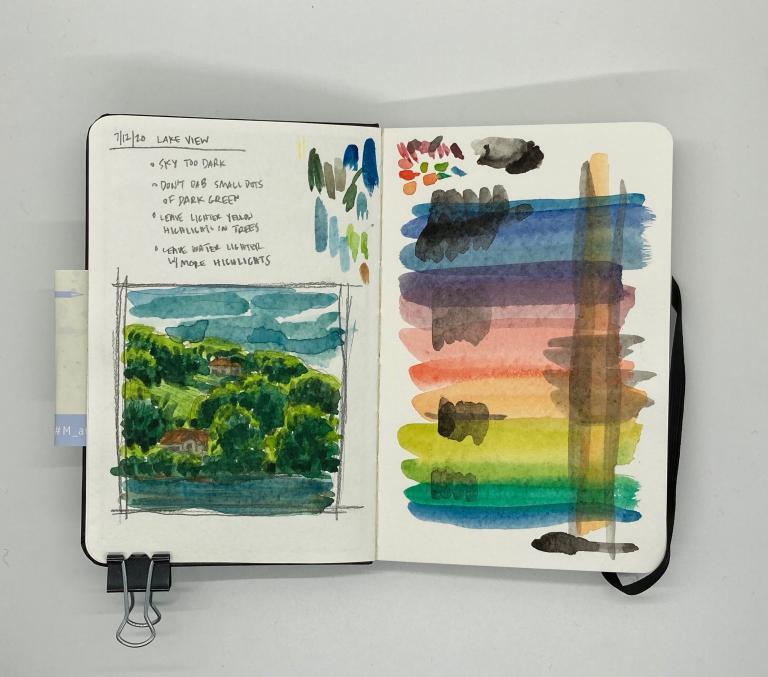 7/12/20 LAKE VIEW
• SKY TOO DARK
• DON'T DAB SMALL DOTS
OF DARK GREEN
• LEAVE LIGHTER YELLOW
HIGHLIGHTS IN TREES
• LEAVE WATER LIGHTER
W/ MORE HIGHLIGHTS
#M_a